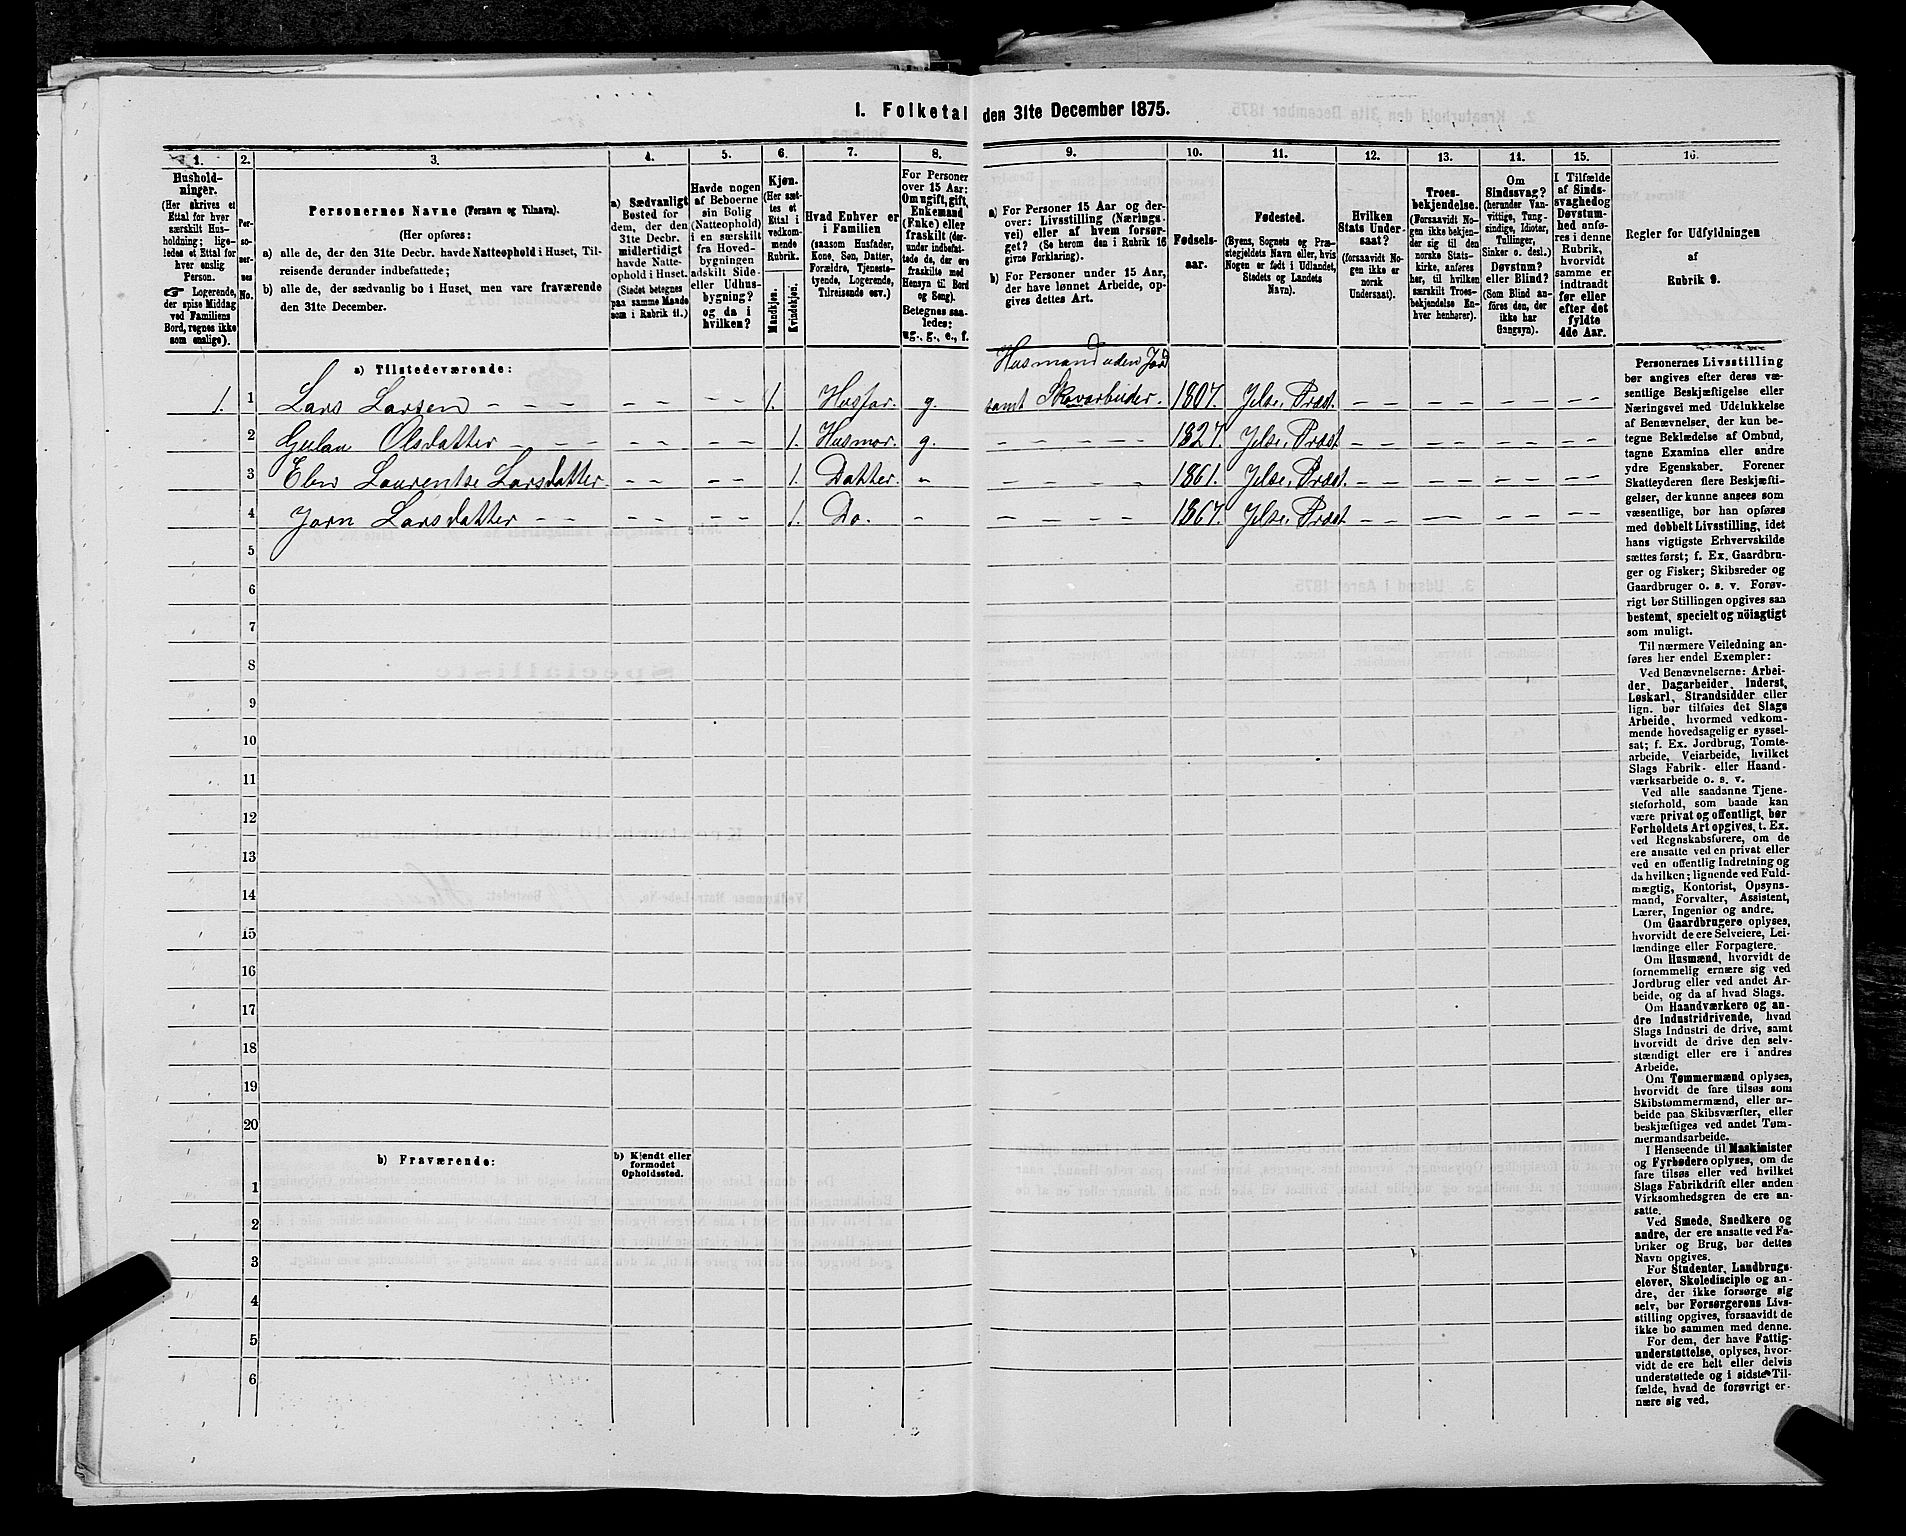 I. Folketal den 31te December 1875.
1. 2. 3. 4. 5. 6. 7. 8. 9. 10. 11. 12. 13. 14. 15. 16.
Hushold-
ninger.
(Her skrives et
Ettal for hver
særskilt Hus-
holdning; lige-
ledes et Ettal for
hver enslig
Person.
☞ Logerende,
der spise Middag
ved Familiens
Bord, regnes ikke
som enslige).
Per-
so-
ner-
nes
No.
Personernes Navne (Fornavn og Tilnavn).
(Her opføres:
a) alle de, der den 31te Decbr. havde Natteophold i Huset, Til-
reisende derunder indbefattede;
b) alle de, der sædvanlig bo i Huset, men vare fraværende
den 31te December.
a) Sædvanligt
Bosted for
dem, der den
31te Decbr.
midlertidigt
havde Natte-
ophold i Huset.
(Stedet betegnes
paa samme Maade
som i Rubrik 11.)
Havde nogen
af Beboerne
sin Bolig
(Natteophold)
i en særskilt
fra Hoved-
bygningen
adskilt Side-
eller Udhus-
bygning?
og da i
hvilken?
Kjøn.
(Her sæt-
tes et
Ettal i
vedkom-
mende
Rubrik.
Mandkjøn.
Kvindekjøn.
Hvad Enhver er
i Familien
(saasom Husfader,
Kone, Søn, Datter,
Forældre, Tjeneste-
tyende, Logerende,
Tilreisende osv.)
For Personer
over 15 Aar:
Om ugift, gift,
Enkemand
(Enke) eller
fraskilt (der-
under indbefat-
tede de, der ere
fraskilte med
Hensyn til Bord
og Seng).
Betegnes saa-
ledes:
ug., g., e., f.
a) For Personer 15 Aar og der-
over: Livsstilling (Nærings-
vei) eller af hvem forsør-
get? (Se herom den i Rubrik 16
givne Forklaring).
b) For Personer under 15 Aar,
der have lønnet Arbeide, op-
gives dettes Art.
Fødsels-
aar.
Fødested.
(Byens, Sognets og Præ-
stegjeldets Navn eller, hvis
Nogen er født i Udlandet,
Stedets og Landets
Navn).
Hvilken
Stats Under-
saat?
(forsaavidt No-
gen ikke er
norsk
Undersaat).
Troes-
bekjendelse.
(Forsaavidt No-
gen ikke bekjen-
der sig til den
norske Stats-
kirke, anføres
her, til hvilken
særskilt Troes-
bekjendelse En-
hver henhører).
Om
Sindssvag?
(herunder Van-
vittige, Tung-
sindige, Idioter,
Tullinger,
Sinker o. desl.)
Døvstum?
eller Blind?
(Som Blind an-
føres den, der
ikke har
Gangsyn).
I Tilfælde
af Sinds-
svaghed og
Døvstum-
hed anfø-
res i denne
Rubrik,
hvorvidt
samme er
indtraadt
før eller
efter det
fyldte
4de Aar.
Regler for Udfyldningen
af
Rubrik 9.
a) Tilstedeværende:
Husmand uden Jord
1. 1 Lars Larsen 1. Husfar. g. samt Skovarbeider. 1807. Jelse Præst.
2 Olsdatter 1. Husmor. g. 1827. Jelse Præst
3 Laurentse Larsdatter 1. Datter. 1861. Jelse Præst.
4 Larsdatter 1. Do. 1867. Jelse Præst
5
6
7
8
9
10
11
12
13
14
15
16
17
18
19
20
b) Fraværende:
b) Kjendt eller
formodet
Opholdssted.
1
2
3
4
5
6
Personernes Livsstilling
bør angives efter deres væ-
sentlige Beskjæftigelse eller
Næringsvei med Udelukkelse
af Benævnelser, der kun be-
tegne Beklædelse af Ombud,
tagne Examina eller andre
ydre Egenskaber. Forener
Skatteyderen flere Beskjæfti-
gelser, der kunne ansees som
væsentlige, bør han opføres
med dobbelt Livsstilling, idet
hans vigtigste Erhvervskilde
sættes først; f. Ex. Gaardbru-
ger og Fisker; Skibsreder og
Gaardbruger o. s. v. Forøv-
rigt bør Stillingen opgives saa
bestemt, specielt og nöiagtigt
som muligt.
Til nærmere Veiledning an-
føres her endel Exempler:
Ved Benævnelserne: Arbei-
der, Dagarbeider, Inderst,
Løskarl, Strandsidder eller
lign. bør tilføies det Slags
Arbeide, hvormed vedkom-
mende hovedsagelig er syssel-
sat; f. Ex. Jordbrug, Tomte-
arbeide, Veiarbeide, hvilket
Slags Fabrik- eller Haand-
værksarbeide o. s. v.
Ved alle saadanne Tjene-
steforhold, som baade kan
være privat og offentligt, bør
Forholdets Art opgives, t. Ex.
ved Regnskabsførere, om de
ere ansatte ved en privat eller
ved en offentlig Indretning og
da hvilken; lignende ved Fuld-
mægtig, Kontorist, Opsyns-
mand, Forvalter, Assistent,
Lærer, Ingeniør og andre.
Om Gaardbrugere oplyses,
hvorvidt de ere Selveiere, Lei-
lændinge eller Forpagtere.
Om Husmænd, hvorvidt de
fornemmelig ernære sig ved
Jordbrug eller ved andet Ar-
beide, og da af hvad Slags.
Om Haandværkere og an-
dre Industridrivende, hvad
Slags Industri de drive, samt
hvorvidt de drive den selv-
stændigt eller ere i andres
Arbeide.
Om Tømmermænd oplyses,
hvorvidt de fare tilsøs som
Skibstømmermænd, eller ar-
beide paa Skibsværfter, eller
beskjæftiges ved andet Tøm-
mermandsarbeide.
I Henseende til Maskinister
og Fyrbødere oplyses, om de
fare tilsøs eller ved hvilket
Slags Fabrikdrift eller anden
Virksomhedsgren de ere an-
satte.
Ved Smede, Snedkere og
andre, der ere ansatte ved Fa-
briker og Brug, bør dettes
Navn opgives.
For Studenter, Landbrugs-
elever, Skoledisciple og an-
dre, der ikke forsørge sig
selv, bør Forsørgerens Livs-
stilling opgives, forsaavidt de
ikke bo sammen med denne.
For dem, der have Fattig-
understøttelse, oplyses, hvor-
vidt de ere helt eller delvis
understøttede og i sidste Til-
fælde, hvad de forøvrigt er-
nære sig ved.